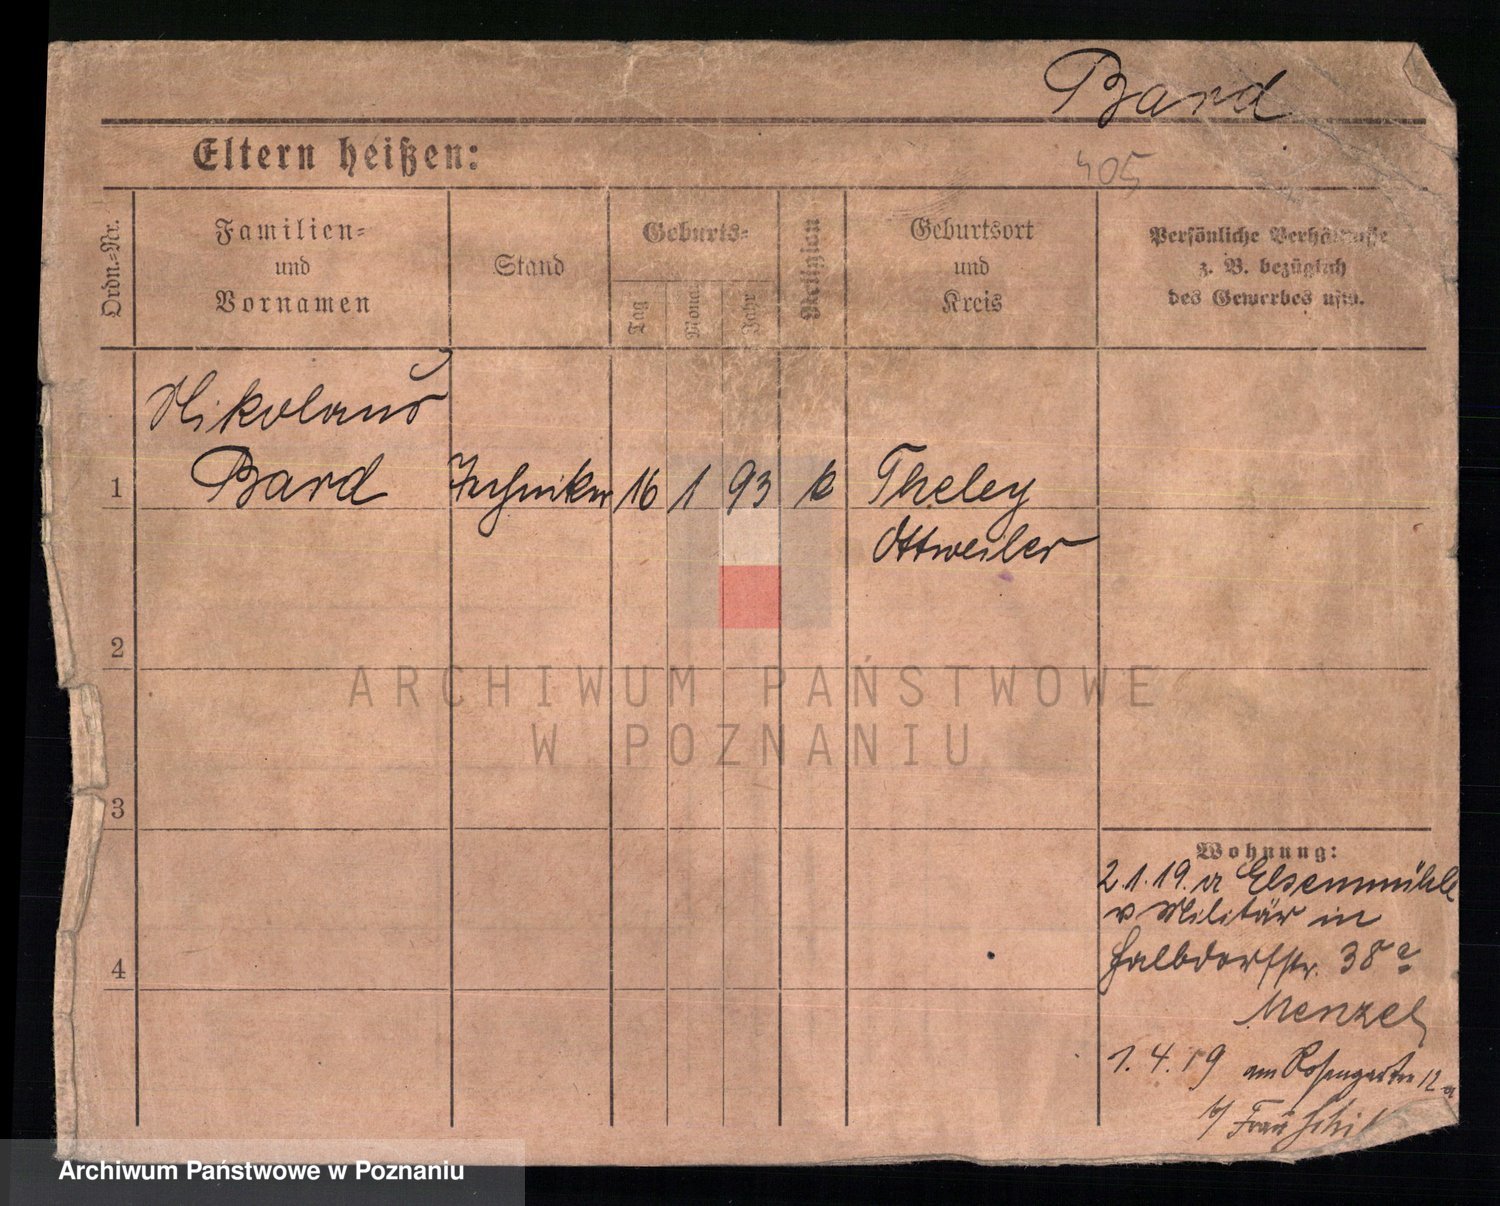 Bard
Eltern heißen:
405
Ordn.-Nr.
Familien-
und
Vornamen
Stand
Geburts-
Tag
Monat
Jahr
Religion
Geburtsort
und
Kreis
Persönliche Verhältnisse
z. B. bezüglich
des Gewerbes usw.
Nikolaus
1 Bard Techniker 16 1 93 k Theley
Ottweiler
2
ARCHIWUM PAŃSTWOWE
W POZNANIU
3
Wohnung:
2.1.19. Elsenmühle
v Militär in
Halbdorfstr. 38a
4
Menzel
1.4.19 am Rosengarten 12a
b/ Frau
Archiwum Państwowe w Poznaniu